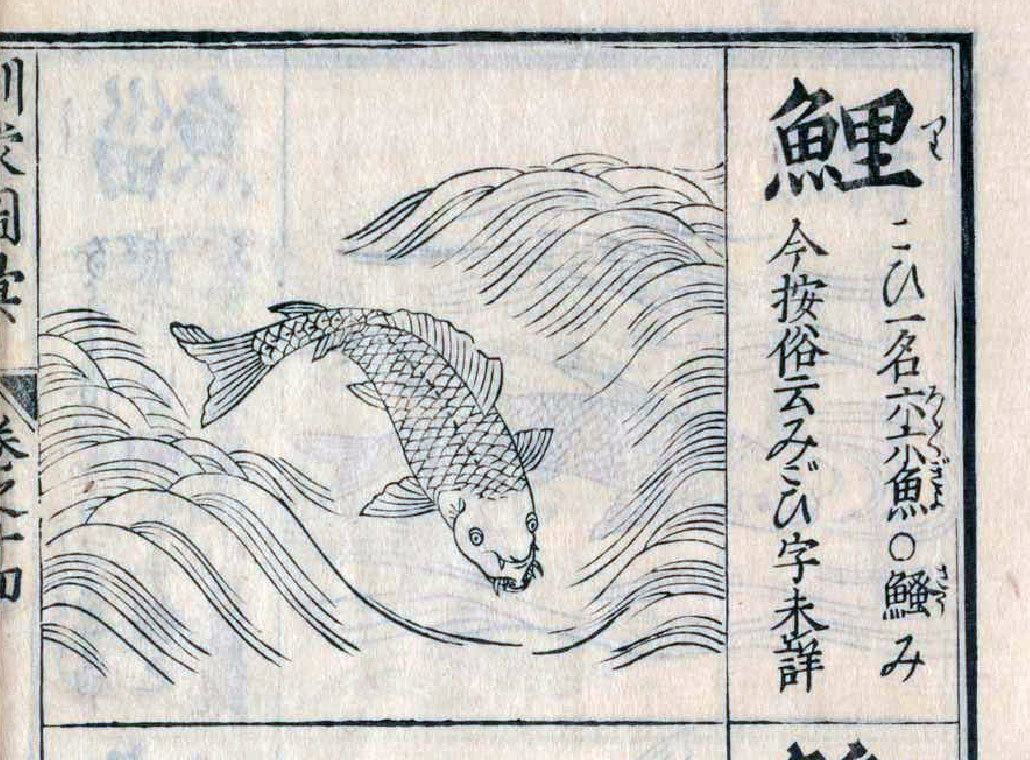 鯉
り
こひ一名六六魚○鰠み
ろくろくぎよ
さう
今按俗云みごひ字未詳
訓蒙圖彙
卷之十四